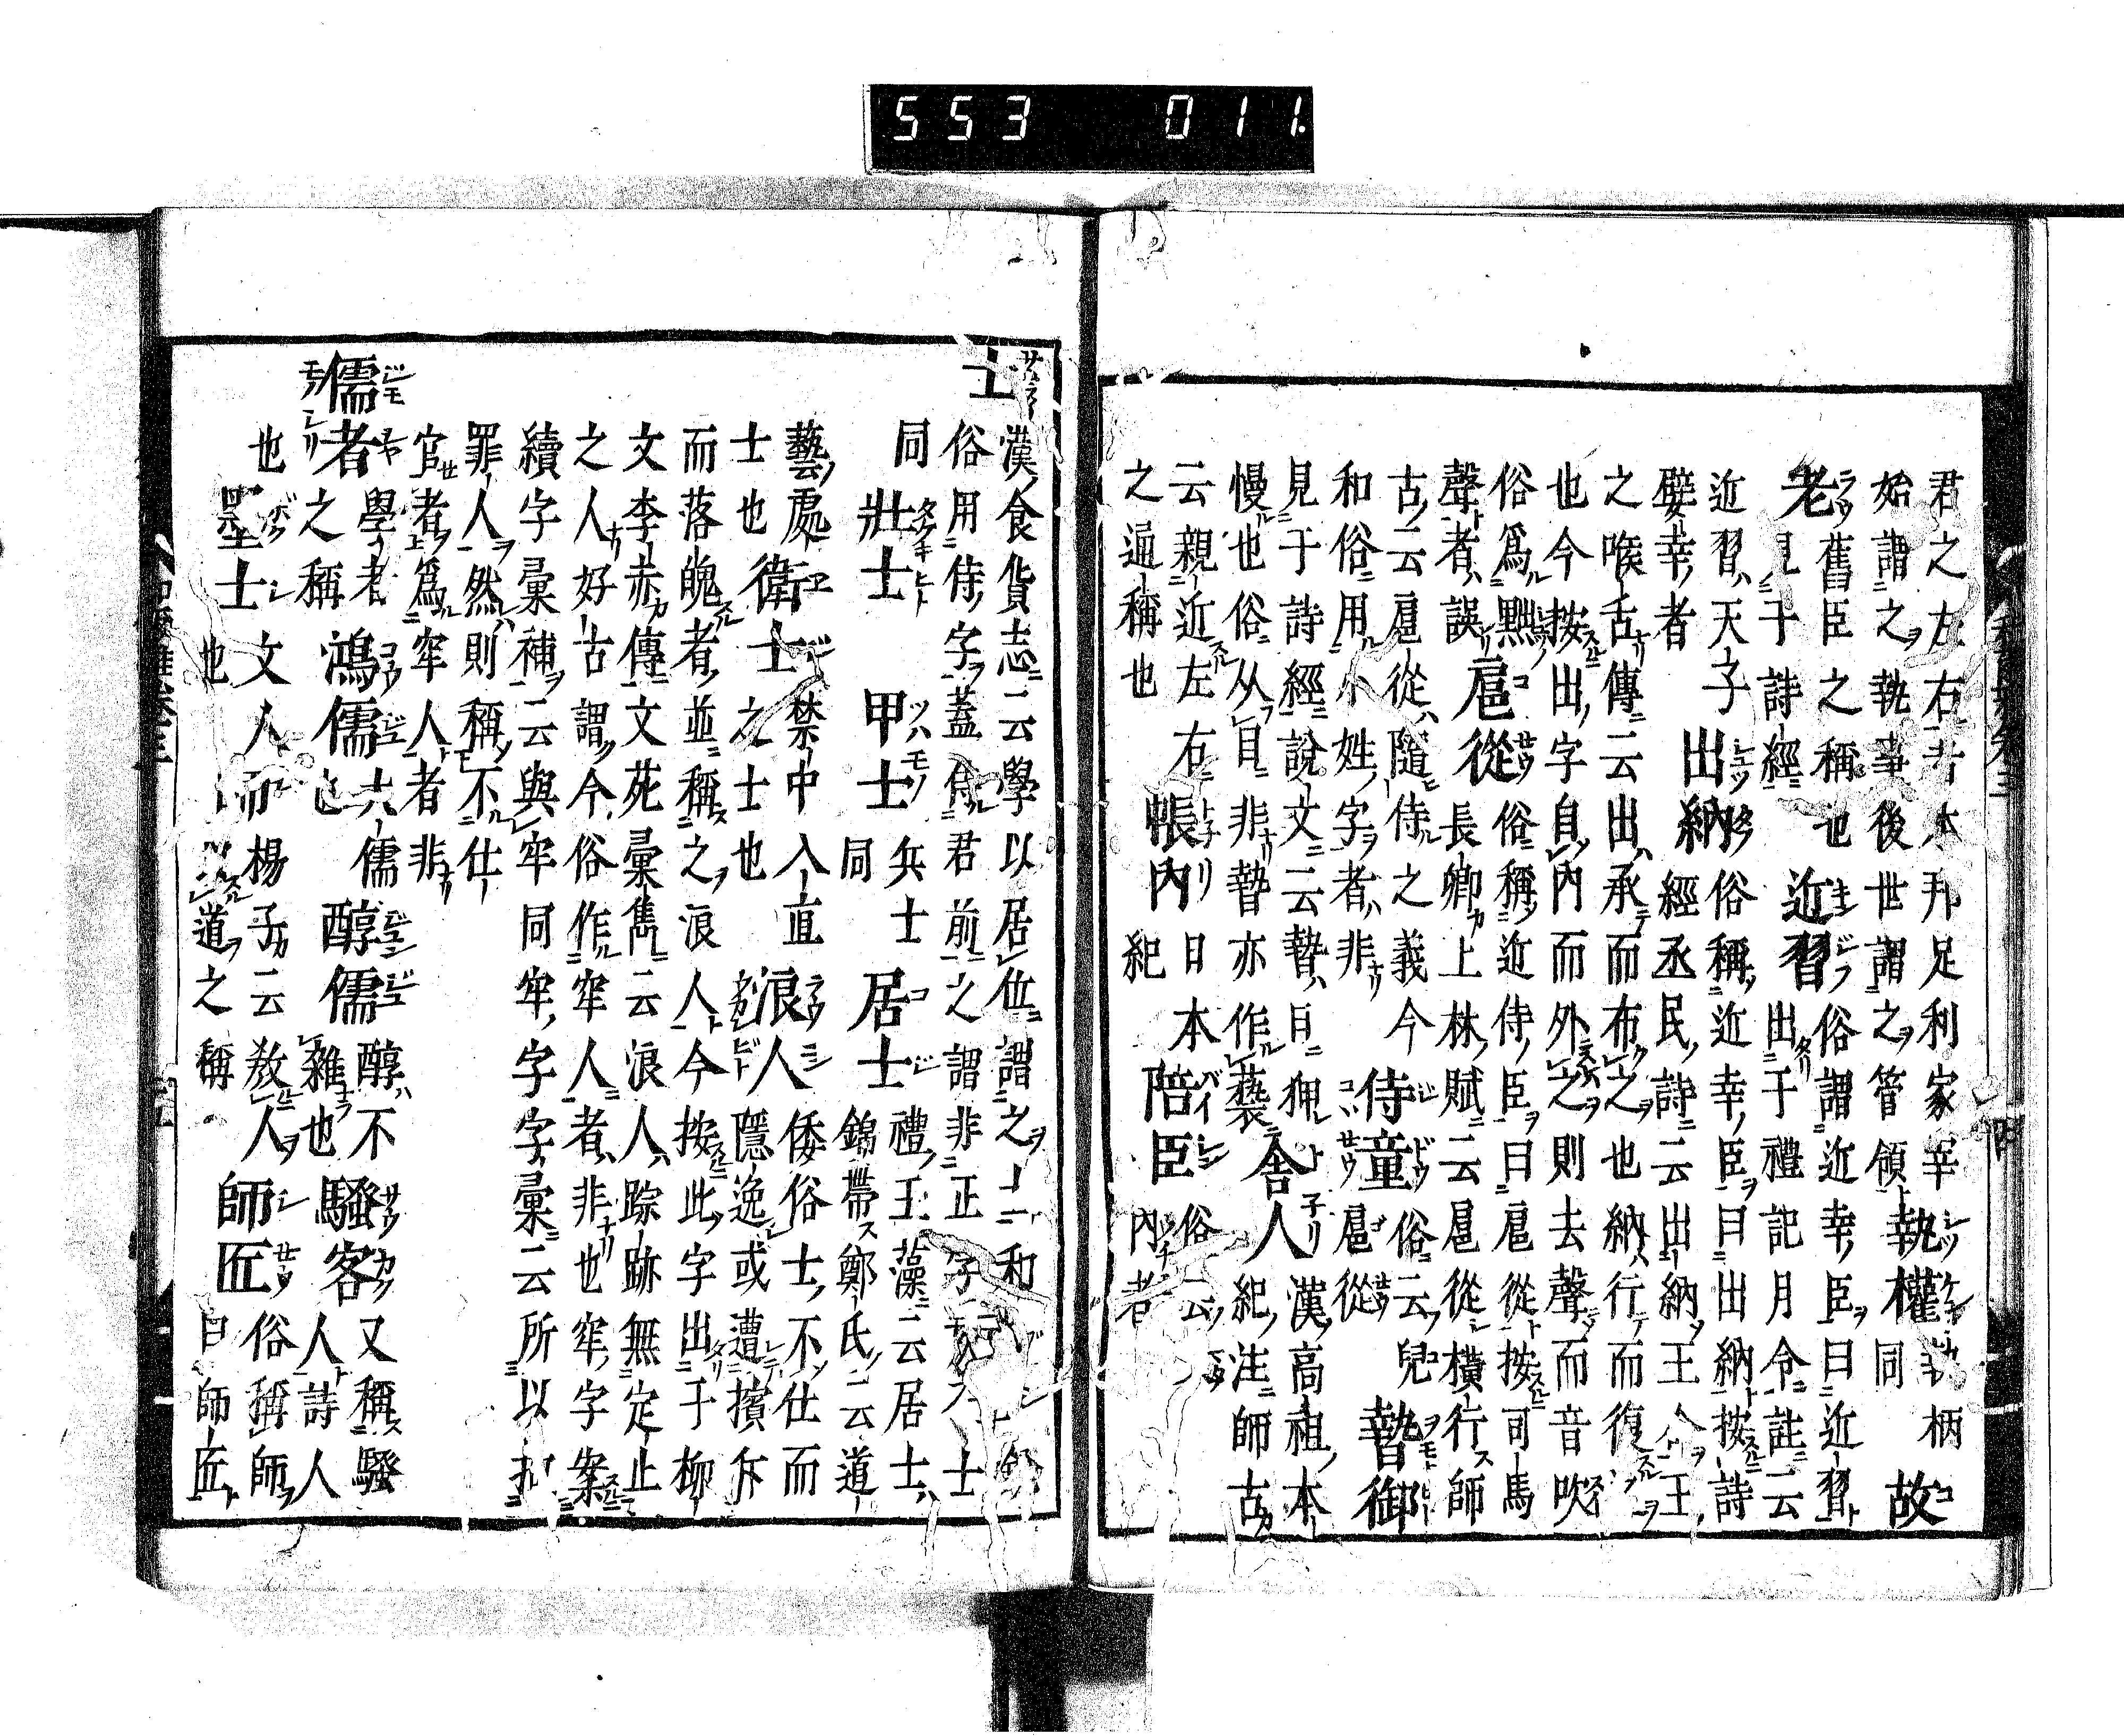 553 011.
君之左右者本邦足利家宰執權執柄故
始謂之執事後世謂之管領同
老舊臣之稱也近習俗謂近幸臣曰近習
見于詩經出于禮記月令註云
近習天子出納俗稱近幸臣曰出納按詩
嬖幸者經丞民詩云出納王命王
之喉舌傳云出承而布之也納行而復
也今按出字自內而外之則去聲而音吹
俗爲點俗稱近侍臣曰扈從按司馬
聲者誤扈從長卿上林賦云扈從橫行師
古云扈從隨侍之義今侍童俗云兒
和俗用小姓字者非扈從
見于詩經說文云暬日狎
慢也俗从目非暬亦作褻舍人漢高祖本
紀注師古
云親近左右帳內日本陪臣俗云
之通稱也紀內者
士漢食貨志云學以居位謂之士和
俗用侍字蓋侍君前之謂非正字
同壯士甲士兵士居士禮玉藻云居士
同錦帶鄭氏云道
藝處衛士禁中入直浪人倭俗士不仕而
士也之士也隱逸或遭擯斥
而落魄者並稱之浪人今按此字出于柳
文李赤傳文苑彙雋云浪人踪跡無定止
之人好古謂今俗作窂人者非也窂字案
續字彙補云與牢同牢字字彙云所以
罪人然則稱不仕
官者爲窂人者非
儒者學者鴻儒大儒醇儒醇不騷客又稱騷
之稱也雜也人詩人
也墨士文人楊子云教人師匠俗稱師
也以道之稱曰師匠